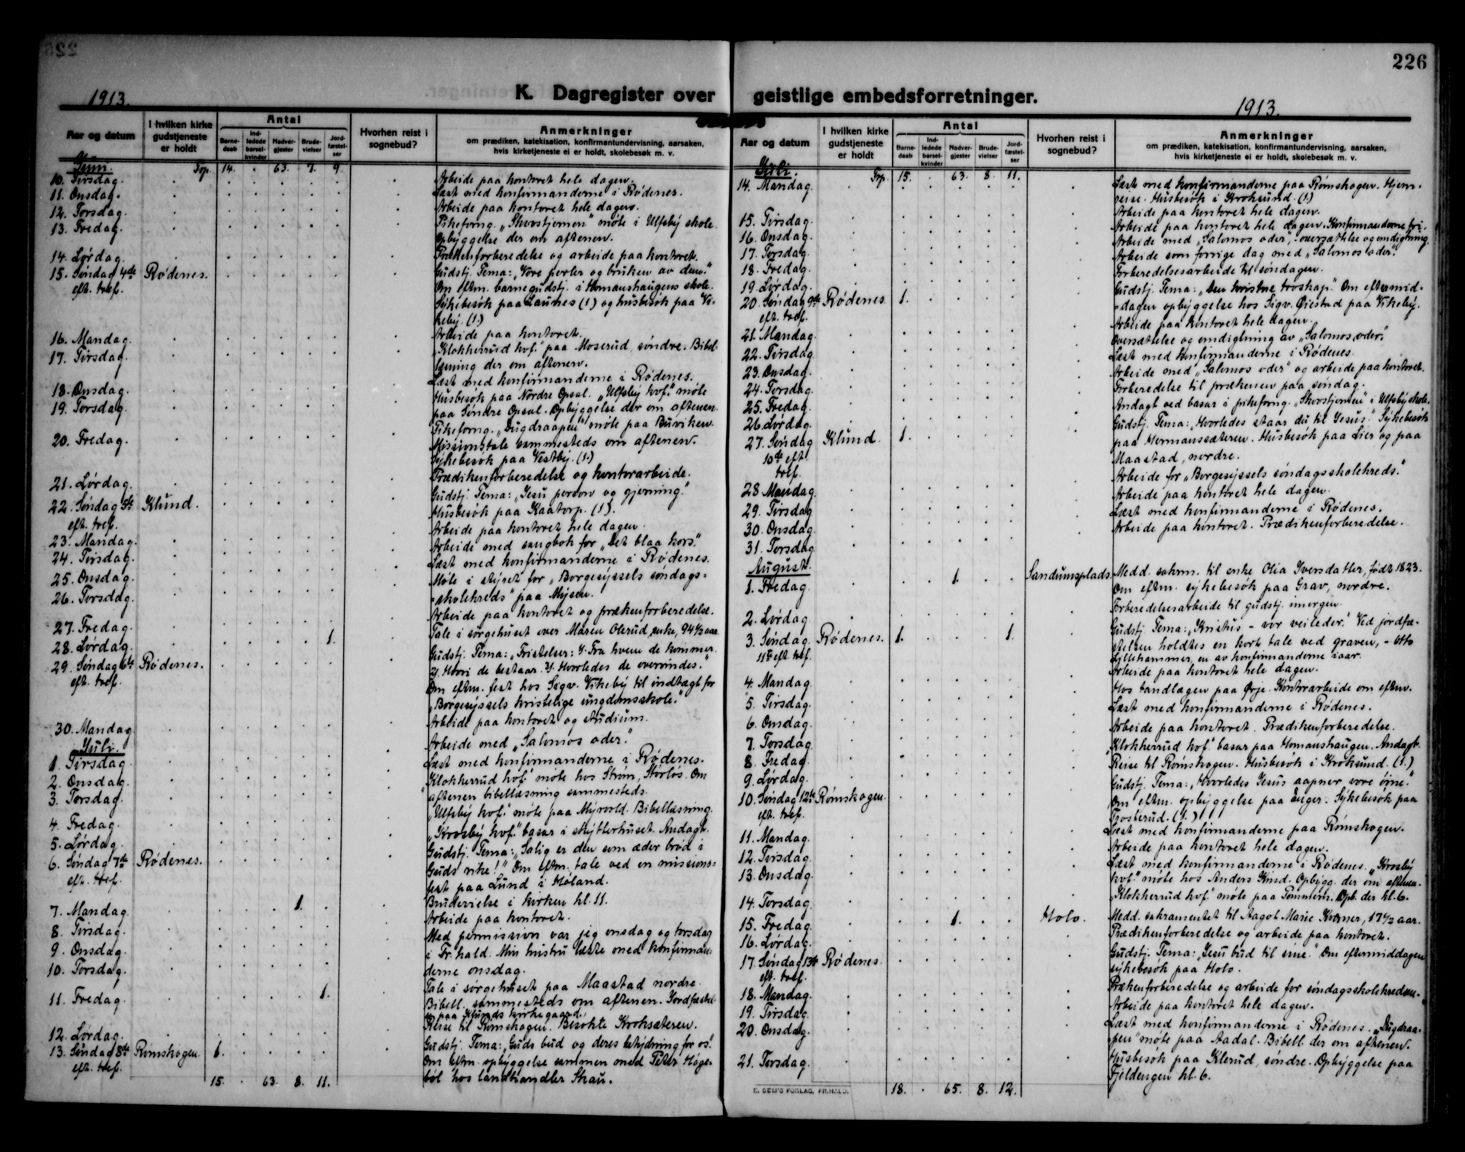 226
K. Dagregister over geistlige embedsforretninger.
1913.
Aar og datum
I hvilken kirke gudstjeneste er holdt
Antal
Barnedaab
Indledede barselkvinder
Nadvergjester
Brudevielser
Jordfæstelser
Hvorhen reist i sognebud?
Anmerkninger
om prædiken, katekisation, konfirmantundervisning, aarsaken, hvis kirketjeneste ei er holdt, skolebesøk m. v.
Juni. Trp. 14. 63. 7. 9.
10. Tirsdag. Arbeide paa kontoret hele dagen.
11. Onsdag. Læst med konfirmanderne i Rødenes.
12. Torsdag. Arbeide paa kontoret hele dagen.
13. Fredag. Pikeforng. „Skovstjernen" møte i Ulfsby skole.
Opbyggelse der om aftenen.
14. Lørdag. Prækenforberedelse og arbeide paa kontoret.
15. Søndag 4de eft. tref. Rødenes. Gudstj. Tema: „Vore evner og bruken av dem."
Om eftm. barnegudstj. i Homanshaugens skole.
Sykebesøk paa (1) og husbesøk paa Vikeby. (1.)
16. Mandag. Arbeide paa kontoret.
17. Tirsdag. „Klokkerrud kvf." paa Moserud, søndre. Bibellæsning der om aftenen.
18. Onsdag. Læst med konfirmanderne i Rødenes.
19. Torsdag. Husbesøk paa Nordre Opsal. „Ulfsby kvf." møte
paa Søndre Opsal. Opbyggelse der om aftenen.
20. Fredag. Pikeforng. „Dugdraapen" møte paa Buviken.
Missionstale sammesteds om aftenen.
Sykebesøk paa Vestby. (1.)
21. Lørdag. Prædikenforberedelse og kontorarbeide.
22. Søndag 5te eft. tref. Klund. Gudstj. Tema: „Jesu person og gjerning."
Husbesøk paa Kaatorp. (1).
23. Mandag. Arbeide paa kontoret hele dagen.
24. Tirsdag. Arbeide med sangbok for „Det blaa kors."
25. Onsdag. Læst med konfirmanderne i Rødenes.
26. Torsdag. Møte i styret for „Borgesyssels søndagsskolekreds" paa Mysen.
27. Fredag. Arbeide paa kontoret og prækenforberedelse.
28. Lørdag. 1. Tale i sørgehuset over Maren Olerud, enke, 94½ aar.
29. Søndag 6te eft. tref. Rødenes. Gudstj. Tema: „Fristelser: 1. Fra hvem de kommer.
2). Hvori de bestaar. 3). Hvorledes de overvindes."
Om eftm. fest hos Sigv. Vikeby til indtægt for
„Borgesyssels kristelige ungdomsskole."
30. Mandag. Arbeide paa kontoret og studium.
Juli.
1. Tirsdag. Arbeide med „Salomos oder."
2. Onsdag. Læst med konfirmanderne i Rødenes.
3. Torsdag. „Klokkerrud kvf." møte hos Strøm, Storløs. Om
aftenen bibellæsning sammesteds.
4. Fredag. „Ulfsby kvf." møte paa Myrvold. Bibellæsning.
5. Lørdag. „Krosby kvf." basar i skytterhuset. Andagt.
6. Søndag 7de eft. tref. Rødenes. Gudstj. Tema: „Salig er den som æder brød i
Guds rike!" Om eftm. tale ved en missionsfest paa Lund i Høland.
7. Mandag. 1. Brudevielse i kirken kl. 11.
8. Tirsdag. Arbeide paa kontoret.
9. Onsdag. Med permission var jeg onsdag og torsdag
10. Torsdag. i Fr.hald. Min hustru læste med konfirmanderne onsdag.
11. Fredag. 1. Tale i sørgehuset paa Maastad nordre.
Bibell. sammesteds om aftenen. Jordfæstelse paa Klunds kirkegaard.
12. Lørdag. Reise til Rømskogen. Besøkte Kroksæteren.
13. Søndag 8de eft. tref. Rømskogen. 1. Gudstj. Tema: Guds bud og deres betydning for os.
Om eftm. opbyggelse sammen med Peter Høgebøl hos landhandler Strau.
15. 63. 8. 11.
1913.
Aar og datum
I hvilken kirke gudstjeneste er holdt
Antal
Barnedaab
Indledede barselkvinder
Nadvergjester
Brudevielser
Jordfæstelser
Hvorhen reist i sognebud?
Anmerkninger
om prædiken, katekisation, konfirmantundervisning, aarsaken, hvis kirketjeneste ei er holdt, skolebesøk m. v.
Juli. Trp. 15. 63. 8. 11.
14. Mandag. Læst med konfirmanderne paa Rømskogen. Hjemreise. Husbesøk i Kroksund. (1)
15. Tirsdag. Arbeide paa kontoret hele dagen.
16. Onsdag. Arbeide paa kontoret hele dagen. Konfirmanderne fri.
17. Torsdag. Arbeide med „Salomos oder", oversættelse og omdigtning.
18. Fredag. Arbeide som forrige dag med „Salomos oder".
19. Lørdag. Forberedelsesarbeide til søndagen.
20. Søndag 9de eft. tref. Rødenes. 1. Gudstj. Tema: „Den kristne troskap." Om eftermiddagen opbyggelse hos Sigv. Øiestad paa Vikeby.
21. Mandag. Arbeide paa kontoret hele dagen.
22. Tirsdag. Oversættelse og omdigtning av „Salomos oder".
23. Onsdag. Læst med konfirmanderne i Rødenes.
24. Torsdag. Arbeide med „Salomos oder" og arbeide paa kontoret.
25. Fredag. Forberedelse til prækenen paa søndag.
26. Lørdag. Andagt ved basar i pikeforng. „Skovstjernen" i Ulfsby skole.
27. Søndag 10de eft. tref. Klund. 1. Gudstj. Tema: „Hvorledes staar du til Jesus?" Sykebesøk
paa Hermanssæteren. Husbesøk paa Lier og paa
Maastad, nordre.
28. Mandag. Arbeide for „Borgesyssels søndagsskolekreds."
29. Tirsdag. Arbeide paa kontoret hele dagen.
30. Onsdag. Læst med konfirmanderne i Rødenes.
31. Torsdag. Arbeide paa kontoret. Prædikenforberedelse.
August.
1. Fredag. 1. Sandumsplads. Medd. sakrm. til enke Olia Iversdatter, født 1823.
Om eftm. sykebesøk paa Grav, nordre.
2. Lørdag. Forberedelsesarbeide til gudstj. imorgen.
3. Søndag 11te eft. tref. Rødenes. 1. 1. Gudstj. Tema: „Kristus – vor veileder." Ved jordfæstelsen holdtes en kort tale ved graven, – Otto
Lyllehammer, en av konfirmanderne iaar.
4. Mandag. Arbeide paa kontoret hele dagen.
5. Tirsdag. Hos tandlægen paa Ørje. Kontorarbeide om eftm.
6. Onsdag. Læst med konfirmanderne i Rødenes.
7. Torsdag. Arbeide paa kontoret. Prædikenforberedelse.
8. Fredag. „Klokkerrud kvf." basar paa Homanshaugen. Andagt.
9. Lørdag. Reise til Rømskogen. Husbesøk i Kroksund. (1.)
10. Søndag 12te eft. tref. Rømskogen. Gudstj. Tema: „Hvorledes Jesus aapner vore øine."
Om eftm. opbyggelse paa Eeger. Sykebesøk paa
Tjosterud. (1.)
11. Mandag. Læst med konfirmanderne paa Rømskogen.
12. Tirsdag. Arbeide paa kontoret hele dagen.
13. Onsdag. Læst med konfirmanderne i Rødenes. „Krosby
kvf." møte hos Anders Krud. Opbygg. der om aftenen.
14. Torsdag. „Klokkerrud kvf." møte paa Tommern. Opb. der kl. 6.
15. Fredag. 1. Holo. Medd. sakramentet til Aagot Marie Kroner, 17½ aar.
16. Lørdag. Prædikenforberedelse og arbeide paa kontoret.
17. Søndag 13de eft. tref. Rødenes. Gudstj. Tema: „Jesu bud til sine." Om eftermiddagen
sykebesøk paa Holo.
18. Mandag. Prækenforberedelse og arbeide for søndagsskolekredsen.
19. Tirsdag. Arbeide paa kontoret hele dagen.
20. Onsdag. Læst med konfirmanderne i Rødenes. „Dugdraapen" møte paa Aadal. Bibell. der om aftenen.
21. Torsdag. Husbesøk paa Klerud, søndre. Opbyggelse paa
Fjeldengen kl. 6.
E. SEM'S FORLAG, FR.HALD.
18. 65. 8. 12.